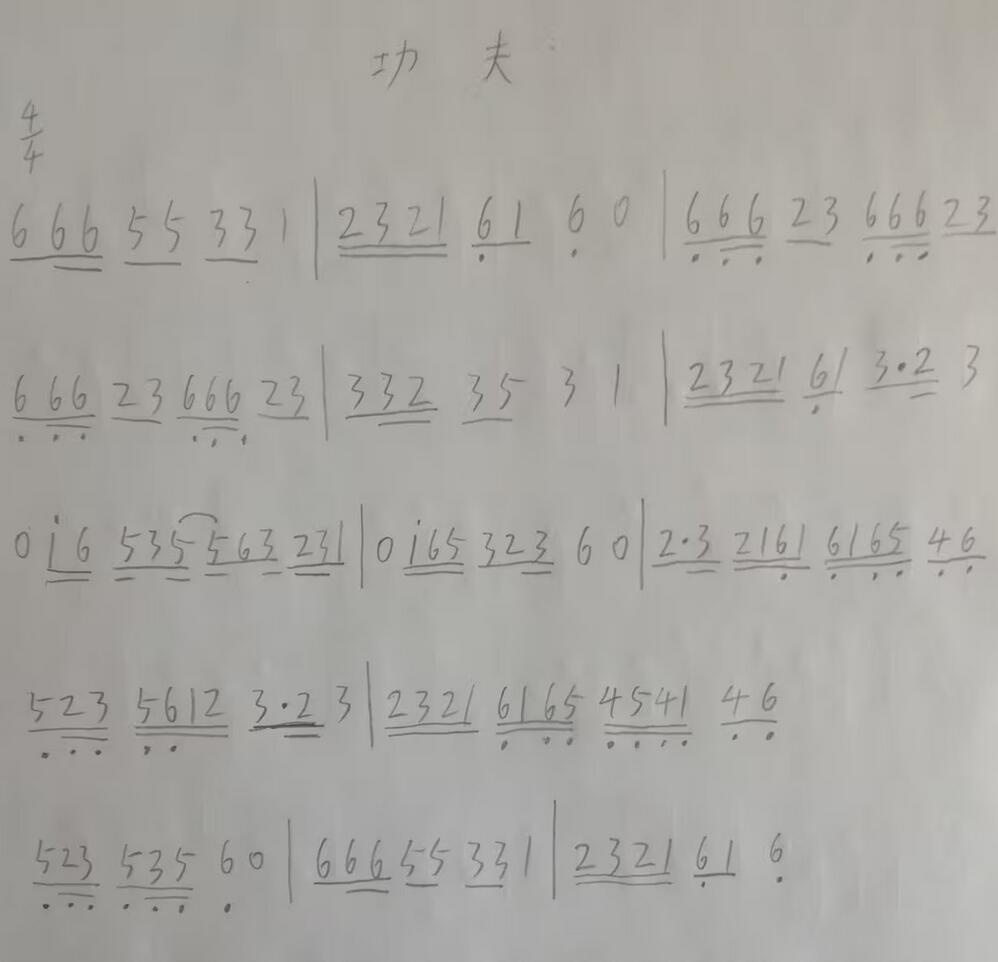 功 夫
4/4
6 6 6 5 5 3 3 1 | 2 3 2 1 6̣ 1 6̣ 0 | 6̣ 6̣ 6̣ 2 3 6̣ 6̣ 6̣ 2 3
6̣ 6̣ 6̣ 2 3 6̣ 6̣ 6̣ 2 3 | 3 3 2 3 5 3 1 | 2 3 2 1 6̣ 1 3·2 3
0 i 6 5 3 5 5 6 3 2 3 1 | 0 i 6 5 3 2 3 6 0 | 2·3 2 1 6̣ 1 6̣ 1 6̣ 5̣ 4̣ 6̣
5̣ 2̣ 3̣ 5̣ 6̣ 1 2 3·2 3 | 2 3 2 1 6̣ 1 6̣ 5̣ 4̣ 5̣ 4̣ 1̣ 4̣ 6̣
5̣ 2̣ 3̣ 5̣ 3̣ 5̣ 6̣ 0 | 6 6 6 5 5 3 3 1 | 2 3 2 1 6̣ 1 6̣